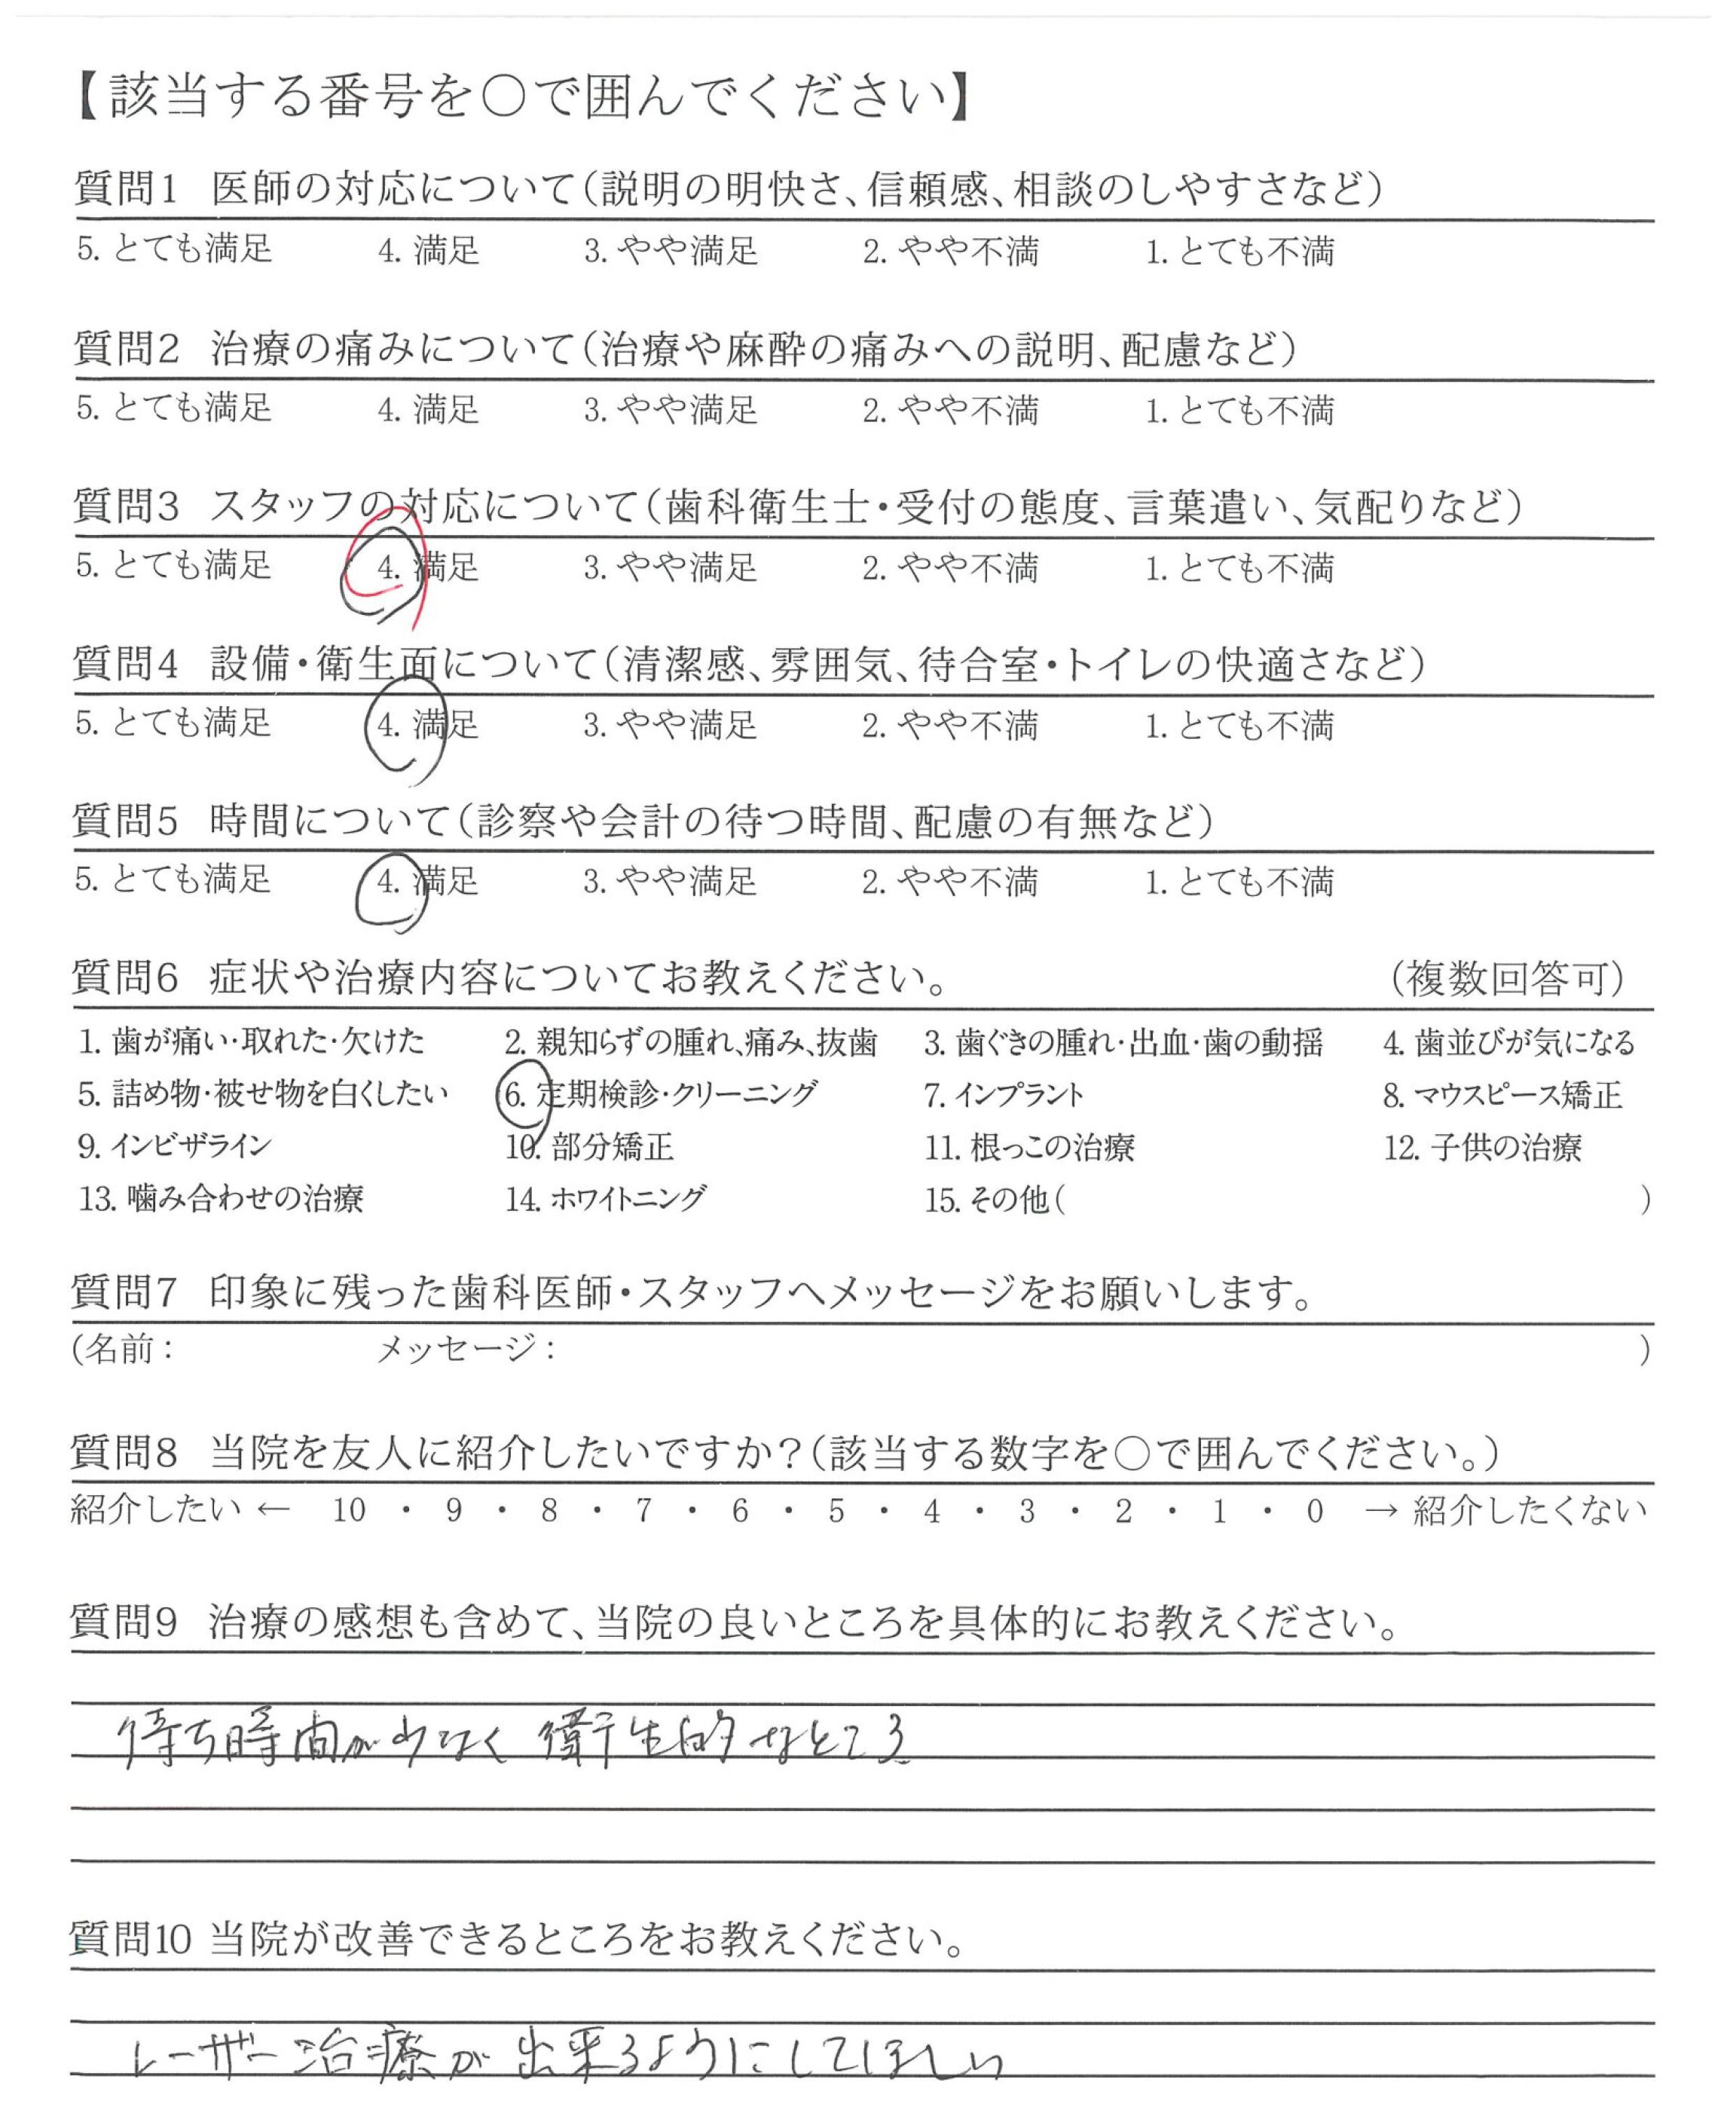 【該当する番号を○で囲んでください】
質問1 医師の対応について(説明の明快さ、信頼感、相談のしやすさなど)
5. とても満足 4. 満足 3. やや満足 2. やや不満 1. とても不満
質問2 治療の痛みについて(治療や麻酔の痛みへの説明、配慮など)
5. とても満足 4. 満足 3. やや満足 2. やや不満 1. とても不満
質問3 スタッフの対応について(歯科衛生士・受付の態度、言葉遣い、気配りなど)
5. とても満足 4. 満足 3. やや満足 2. やや不満 1. とても不満
質問4 設備・衛生面について(清潔感、雰囲気、待合室・トイレの快適さなど)
5. とても満足 4. 満足 3. やや満足 2. やや不満 1. とても不満
質問5 時間について(診察や会計の待つ時間、配慮の有無など)
5. とても満足 4. 満足 3. やや満足 2. やや不満 1. とても不満
質問6 症状や治療内容についてお教えください。 (複数回答可)
1. 歯が痛い・取れた・欠けた 2. 親知らずの腫れ、痛み、抜歯 3. 歯ぐきの腫れ・出血・歯の動揺 4. 歯並びが気になる
5. 詰め物・被せ物を白くしたい 6. 定期検診・クリーニング 7. インプラント 8. マウスピース矯正
9. インビザライン 10. 部分矯正 11. 根っこの治療 12. 子供の治療
13. 噛み合わせの治療 14. ホワイトニング 15. その他( )
質問7 印象に残った歯科医師・スタッフへメッセージをお願いします。
(名前: メッセージ: )
質問8 当院を友人に紹介したいですか?(該当する数字を○で囲んでください。)
紹介したい ← 10 ・ 9 ・ 8 ・ 7 ・ 6 ・ 5 ・ 4 ・ 3 ・ 2 ・ 1 ・ 0 → 紹介したくない
質問9 治療の感想も含めて、当院の良いところを具体的にお教えください。
待ち時間が少なく衛生的なところ
質問10 当院が改善できるところをお教えください。
レーザー治療が出来るようにしてほしい